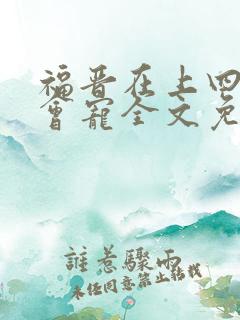 福晋在上四
会宠全文免
谁惹骤雨
未经同意禁止转载